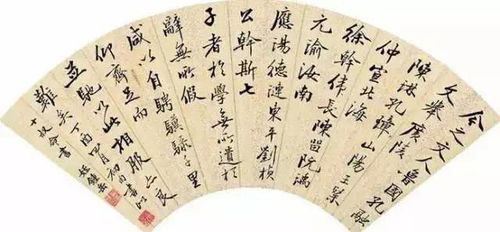 今之文人魯國孔融
文舉廣陵
陳琳孔璋山陽王粲
仲宣北海
徐幹偉長陳留阮瑀
元瑜汝南
應瑒德璉東平劉楨
公幹斯七
子者於學無所遺於
辭無所假
咸以自騁驥騄千里
仰齊足而
並馳以此相服亦良
難矣丁酉四月初
命書